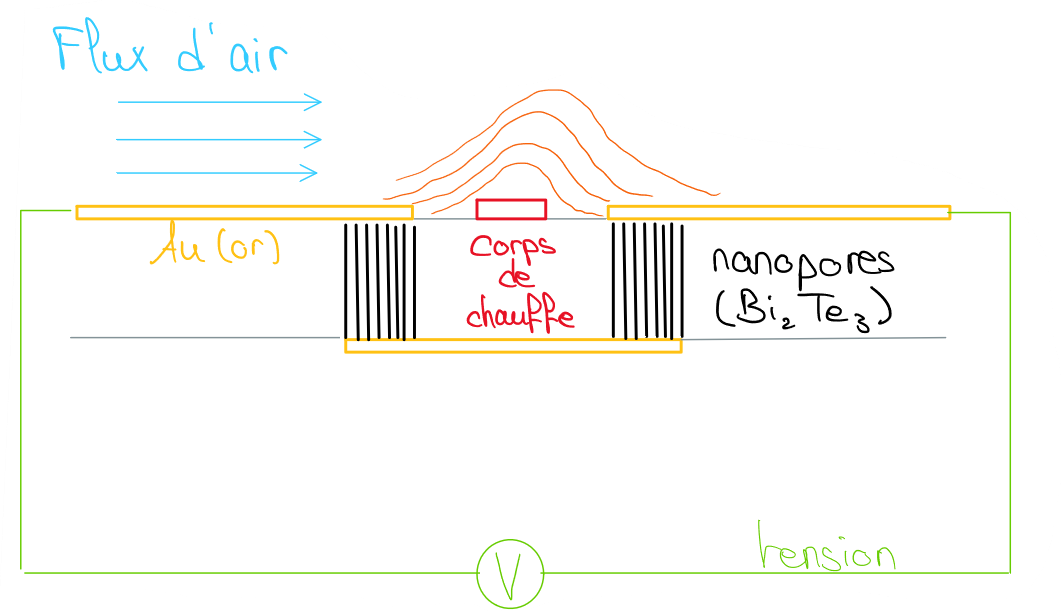 Flux d'air
Au (or)
Corps
de
chauffe
nanopores
(Bi₂Te₃)
V
tension